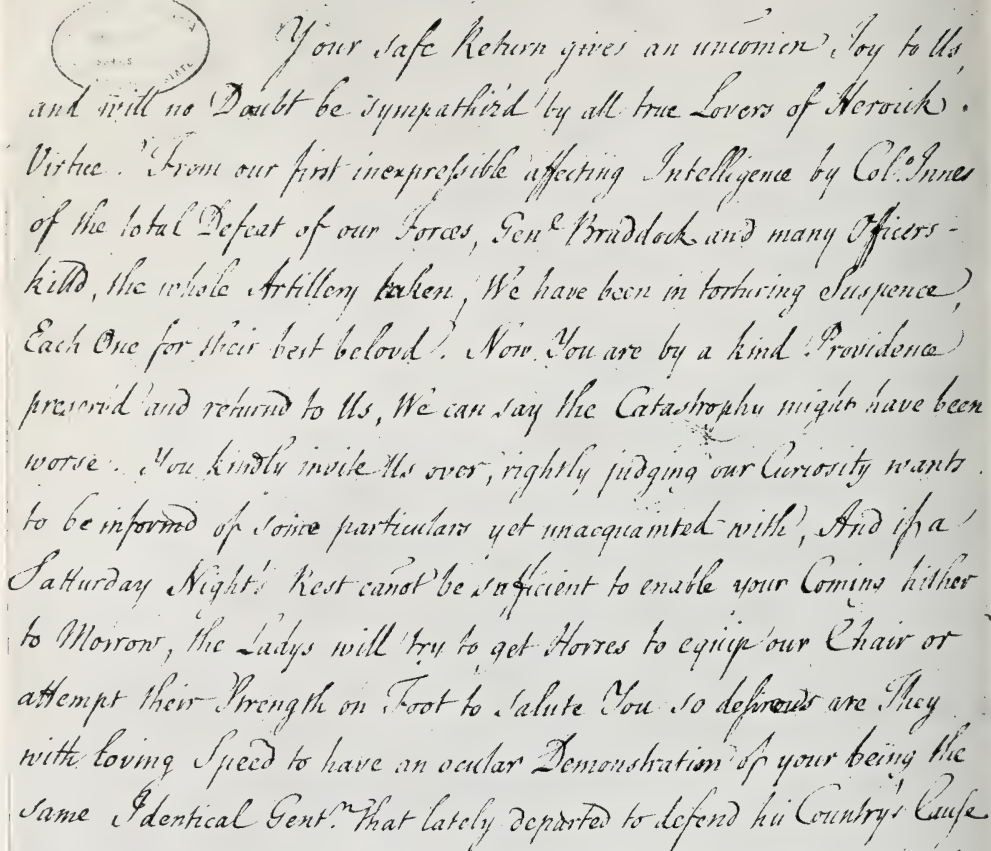 Your safe Return gives an uncomon Joy to Us,
and will no Doubt be sympathiz'd by all true Lovers of Heroick
Virtue. From our first inexpressible affecting Intelligence by Colo. Innes
of the total Defeat of our Forces, Genl. Braddock and many Officers -
killd, the whole Artillery taken, We have been in torturing Suspence,
Each One for their best belovd. Now You are by a kind Providence
preserv'd and returnd to Us, We can say the Catastrophy might have been
worse. You kindly invite Us over, rightly judging our Curiosity wants
to be informd of some particulars yet unacquainted with, And if a
Satturday Night's Rest canot be sufficient to enable your Coming hither
to Morrow, the Ladys will try to get Horses to equip our Chair or
attempt their Strength on Foot to Salute You so desirous are They
with loving Speed to have an ocular Demonstration of your being the
same Identical Gent. that lately departed to defend his Country's Cause